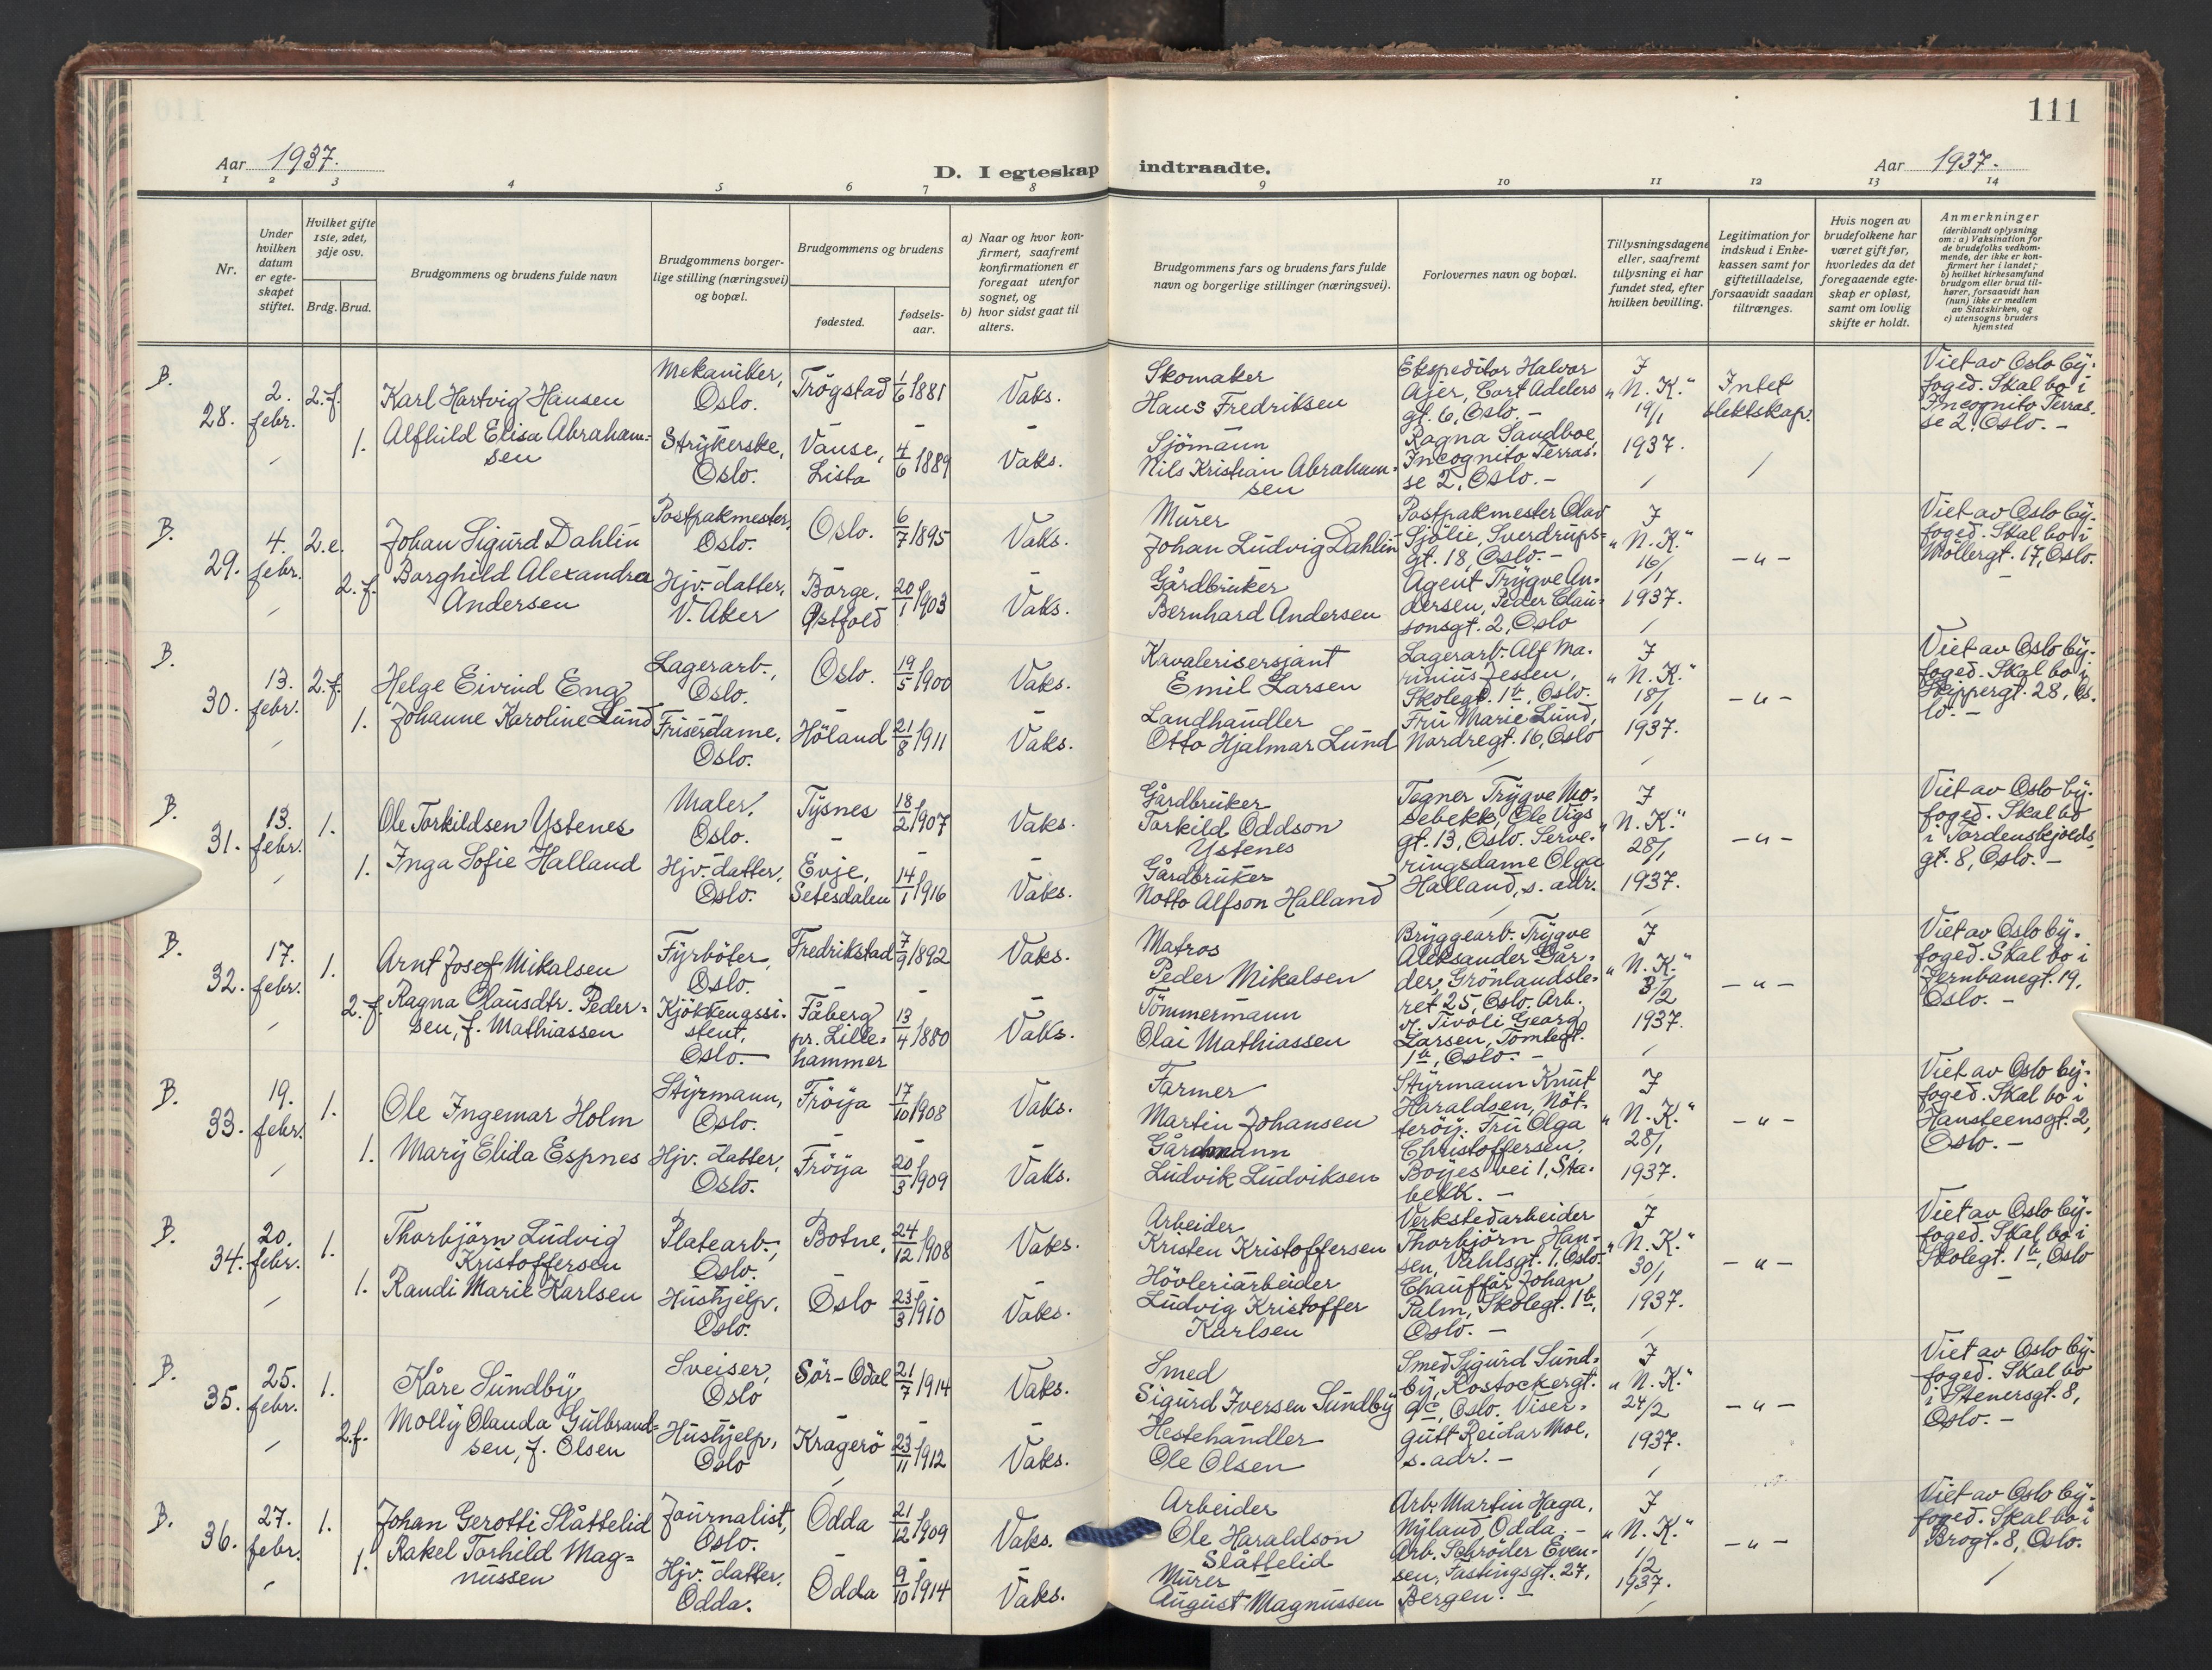 111
Aar 1937.
D. I egteskap indtraadte.
Aar 1937.
1 2 3 4 5 6 7 8 9 10 11 12 13 14
Nr.
Under
hvilken
datum
er egte-
skapet
stiftet.
Hvilket gifte
1ste, 2det,
3dje osv.
Brdg. Brud.
Brudgommens og brudens fulde navn
Brudgommens borger-
lige stilling (næringsvei)
og bopæl.
Brudgommens og brudens
fødested.
fødsels-
aar.
a) Naar og hvor kon-
firmert, saafremt
konfirmationen er
foregaat utenfor
sognet, og
b) hvor sidst gaat til
alters.
Brudgommens fars og brudens fars fulde
navn og borgerlige stillinger (næringsvei).
Forlovernes navn og bopæl.
Tillysningsdagene
eller, saafremt
tillysning ei har
fundet sted, efter
hvilken bevilling.
Legitimation for
indskud i Enke-
kassen samt for
giftetilladelse,
forsaavidt saadan
tiltrænges.
Hvis nogen av
brudefolkene har
været gift før,
hvorledes da det
foregaaende egte-
skap er opløst,
samt om lovlig
skifte er holdt.
Anmerkninger
(deriblandt oplysning
om: a) Vaksination for
de brudefolks vedkom-
mende, der ikke er kon-
firmert her i landet;
b) hvilket kirkesamfund
brudgom eller brud til-
hører, forsaavidt han
(hun) ikke er medlem
av Statskirken, og
c) utensogns bruders
hjemsted
B.
28.
2.
febr.
2. f.
1.
Karl Hartvig Hansen
Alfhild Elisa Abraham-
sen
Mekaniker,
Oslo.
Strykerske,
Oslo.
Trögstad 1/6 1881
Vanse,
Lista 4/6 1889
Vaks.
Vaks.
Skomaker
Hans Fredriksen
Sjömann
Nils Kristian Abraham-
sen
Ekspeditör Halvor
Ajer, Cort Adelers
gt. 6, Oslo. -
Ragna Sandboe,
Incognito Terras-
se 2, Oslo. -
I
"N. K."
19/1
1937.
Intet
slektskap.
Viet av Oslo by-
foged. Skal bo i
Incognito Terras-
se 2, Oslo. -
B.
29.
4.
febr.
2. e.
2. f.
Johan Sigurd Dahlin
Borghild Alexandra
Andersen
Postpakmester,
Oslo.
Hjv. datter,
V. Aker
Oslo. 6/7 1895
Borge,
Østfold 20/1 1903
Vaks.
Vaks.
Murer
Johan Ludvig Dahlin
Gårdbruker
Bernhard Andersen
Postpakmester Olav
Sjölie, Sverdrups-
gt. 18, Oslo. -
Agent Trygve An-
dersen, Peder Clau-
sonsgt. 2, Oslo
I
"N. K."
16/1
1937.
- " -
Viet av Oslo by-
foged. Skal bo i
Mollergt. 17, Oslo.
B.
30.
13.
febr.
2. f.
1.
Helge Eivind Eng
Johanne Karoline Lund
Lagerarb.,
Oslo.
Friserdame,
Oslo.
Oslo. 19/5 1900
Höland 21/8 1911
Vaks.
Vaks.
Kavalerisersjant
Emil Larsen
Landhandler
Otto Hjalmar Lund
Lagerarb. Alf Ma-
rinius Jessen,
Skolegt. 1b, Oslo.
Fru Marie Lund,
Nordregt. 16, Oslo
I
"N. K."
18/1
1937.
- " -
Viet av Oslo by-
foged. Skal bo i
Skippergt. 28, Os-
lo. -
B.
31.
13.
febr.
1.
1.
Ole Torkildsen Ystenes
Inga Sofie Halland
Maler,
Oslo.
Hjv. datter,
Oslo.
Tysnes 18/2 1907
Evje,
Setesdalen 14/1 1916
Vaks.
Vaks.
Gårdbruker
Torkild Oddson
Ystenes
Gårdbruker
Notto Alfson Halland
Tegner Trygve Mo-
sebekk, Ole Vigs
gt. 13, Oslo. Serve-
ringsdame Olga
Halland, s. adr.
I
"N. K."
28/1
1937.
- " -
Viet av Oslo by-
foged. Skal bo
i Tordenskjolds
gt. 8, Oslo. -
B.
32.
17.
febr.
1.
2. f.
Arnt Josef Mikalsen
Ragna Clausdtr. Peder-
sen, f. Mathiassen
Fyrböter,
Oslo.
Kjökkenassi-
stent,
Oslo.
Fredrikstad 7/9 1892
Fåberg
pr. Lille-
hammer 13/4 1880
Vaks.
Vaks.
Matros
Peder Mikalsen
Tömmermann
Olai Mathiassen
Bryggearb. Trygve
Aleksander Går-
der, Grönlandsle-
ret 25, Oslo. Arb.
v. Tivoli Georg
Larsen, Tomtegt.
1b, Oslo. -
I
"N. K."
3/2
1937.
- " -
Viet av Oslo by-
foged. Skal bo i
Jernbanegt. 19,
Oslo. -
B.
33.
19.
febr.
1.
1.
Ole Ingemar Holm
Mary Elida Espnes
Styrmann,
Oslo.
Hjv. datter,
Oslo.
Fröya 17/10 1908
Fröya 20/3 1909
Vaks.
Vaks.
Farmer
Martin Johansen
Gårdmann
Ludvik Ludviksen
Styrmann Knut
Haraldsen, Nöt-
teröy. Fru Olga
Christoffersen,
Boyes vei 1, Sta-
bekk. -
I
"N. K."
28/1
1937.
- " -
Viet av Oslo by-
foged. Skal bo i
Hansteensgt. 2,
Oslo. -
B.
34.
20.
febr.
1.
1.
Thorbjörn Ludvig
Kristoffersen
Randi Marie Karlsen
Platearb.,
Oslo.
Hushjelp,
Oslo.
Botne, 24/12 1908
Oslo 23/3 1910
Vaks.
Vaks.
Arbeider
Kristen Kristoffersen
Hövleriarbeider
Ludvig Kristoffer
Karlsen
Verkstedarbeider
Thorbjörn Han-
sen, Vahlsgt. 1, Oslo.
Chaufför Johan
Palm, Skolegt. 1b,
Oslo. -
I
"N. K."
30/1
1937.
- " -
Viet av Oslo by-
foged. Skal bo i
Skolegt. 1b, Oslo
B.
35.
25.
febr.
1.
2. f.
Kåre Sundby
Molly Olauda Gulbrand-
sen, f. Olsen
Sveiser,
Oslo
Hushjelp,
Oslo
Sör-Odal 21/7 1914
Kragerö 23/11 1912
Vaks.
Vaks.
Smed
Sigurd Iversen Sundby
Hestehandler
Ole Olsen
Smed Sigurd Sund-
by, Rostockergt.
9c, Oslo. Viser-
gutt Reidar Moe,
s. adr. -
I
"N. K."
24/2
1937.
- " -
Viet av Oslo by-
foged. Skal bo
i Stenersgt. 8,
Oslo. -
B.
36.
27.
febr.
1.
1.
Johan Gerotti Slåttelid
Rakel Torhild Mag-
nussen
Journalist,
Oslo.
Hjv. datter,
Odda.
Odda 21/12 1909
Odda 9/10 1914
Vaks.
Vaks.
Arbeider
Ole Haraldson
Slåttelid
Murer
August Magnussen
Arb. Martin Haga,
Nyland, Odda. -
Arb. Schröder Even-
sen, Fastingsgt. 27,
Bergen. -
I
"N. K."
1/2
1937.
- " -
Viet av Oslo by-
foged. Skal bo i
Brogt. 8, Oslo.